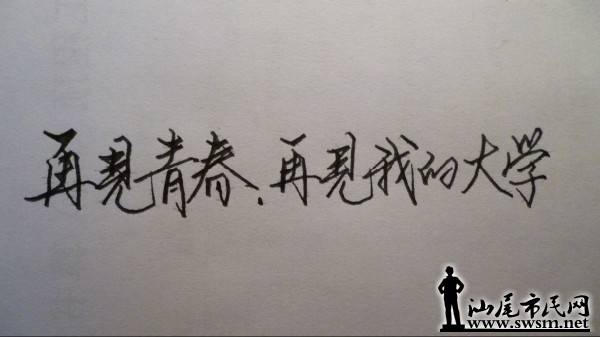 再見青春、再見我的大学
汕尾市民网
www.swsm.net